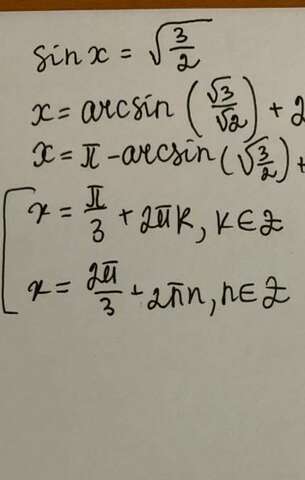 sin x = √(3/2)
x = arcsin (√3/√2) + 2
x = π - arcsin (√(3/2)) +
x = π/3 + 2πk, k ∈ Z
x = 2π/3 + 2πn, n ∈ Z